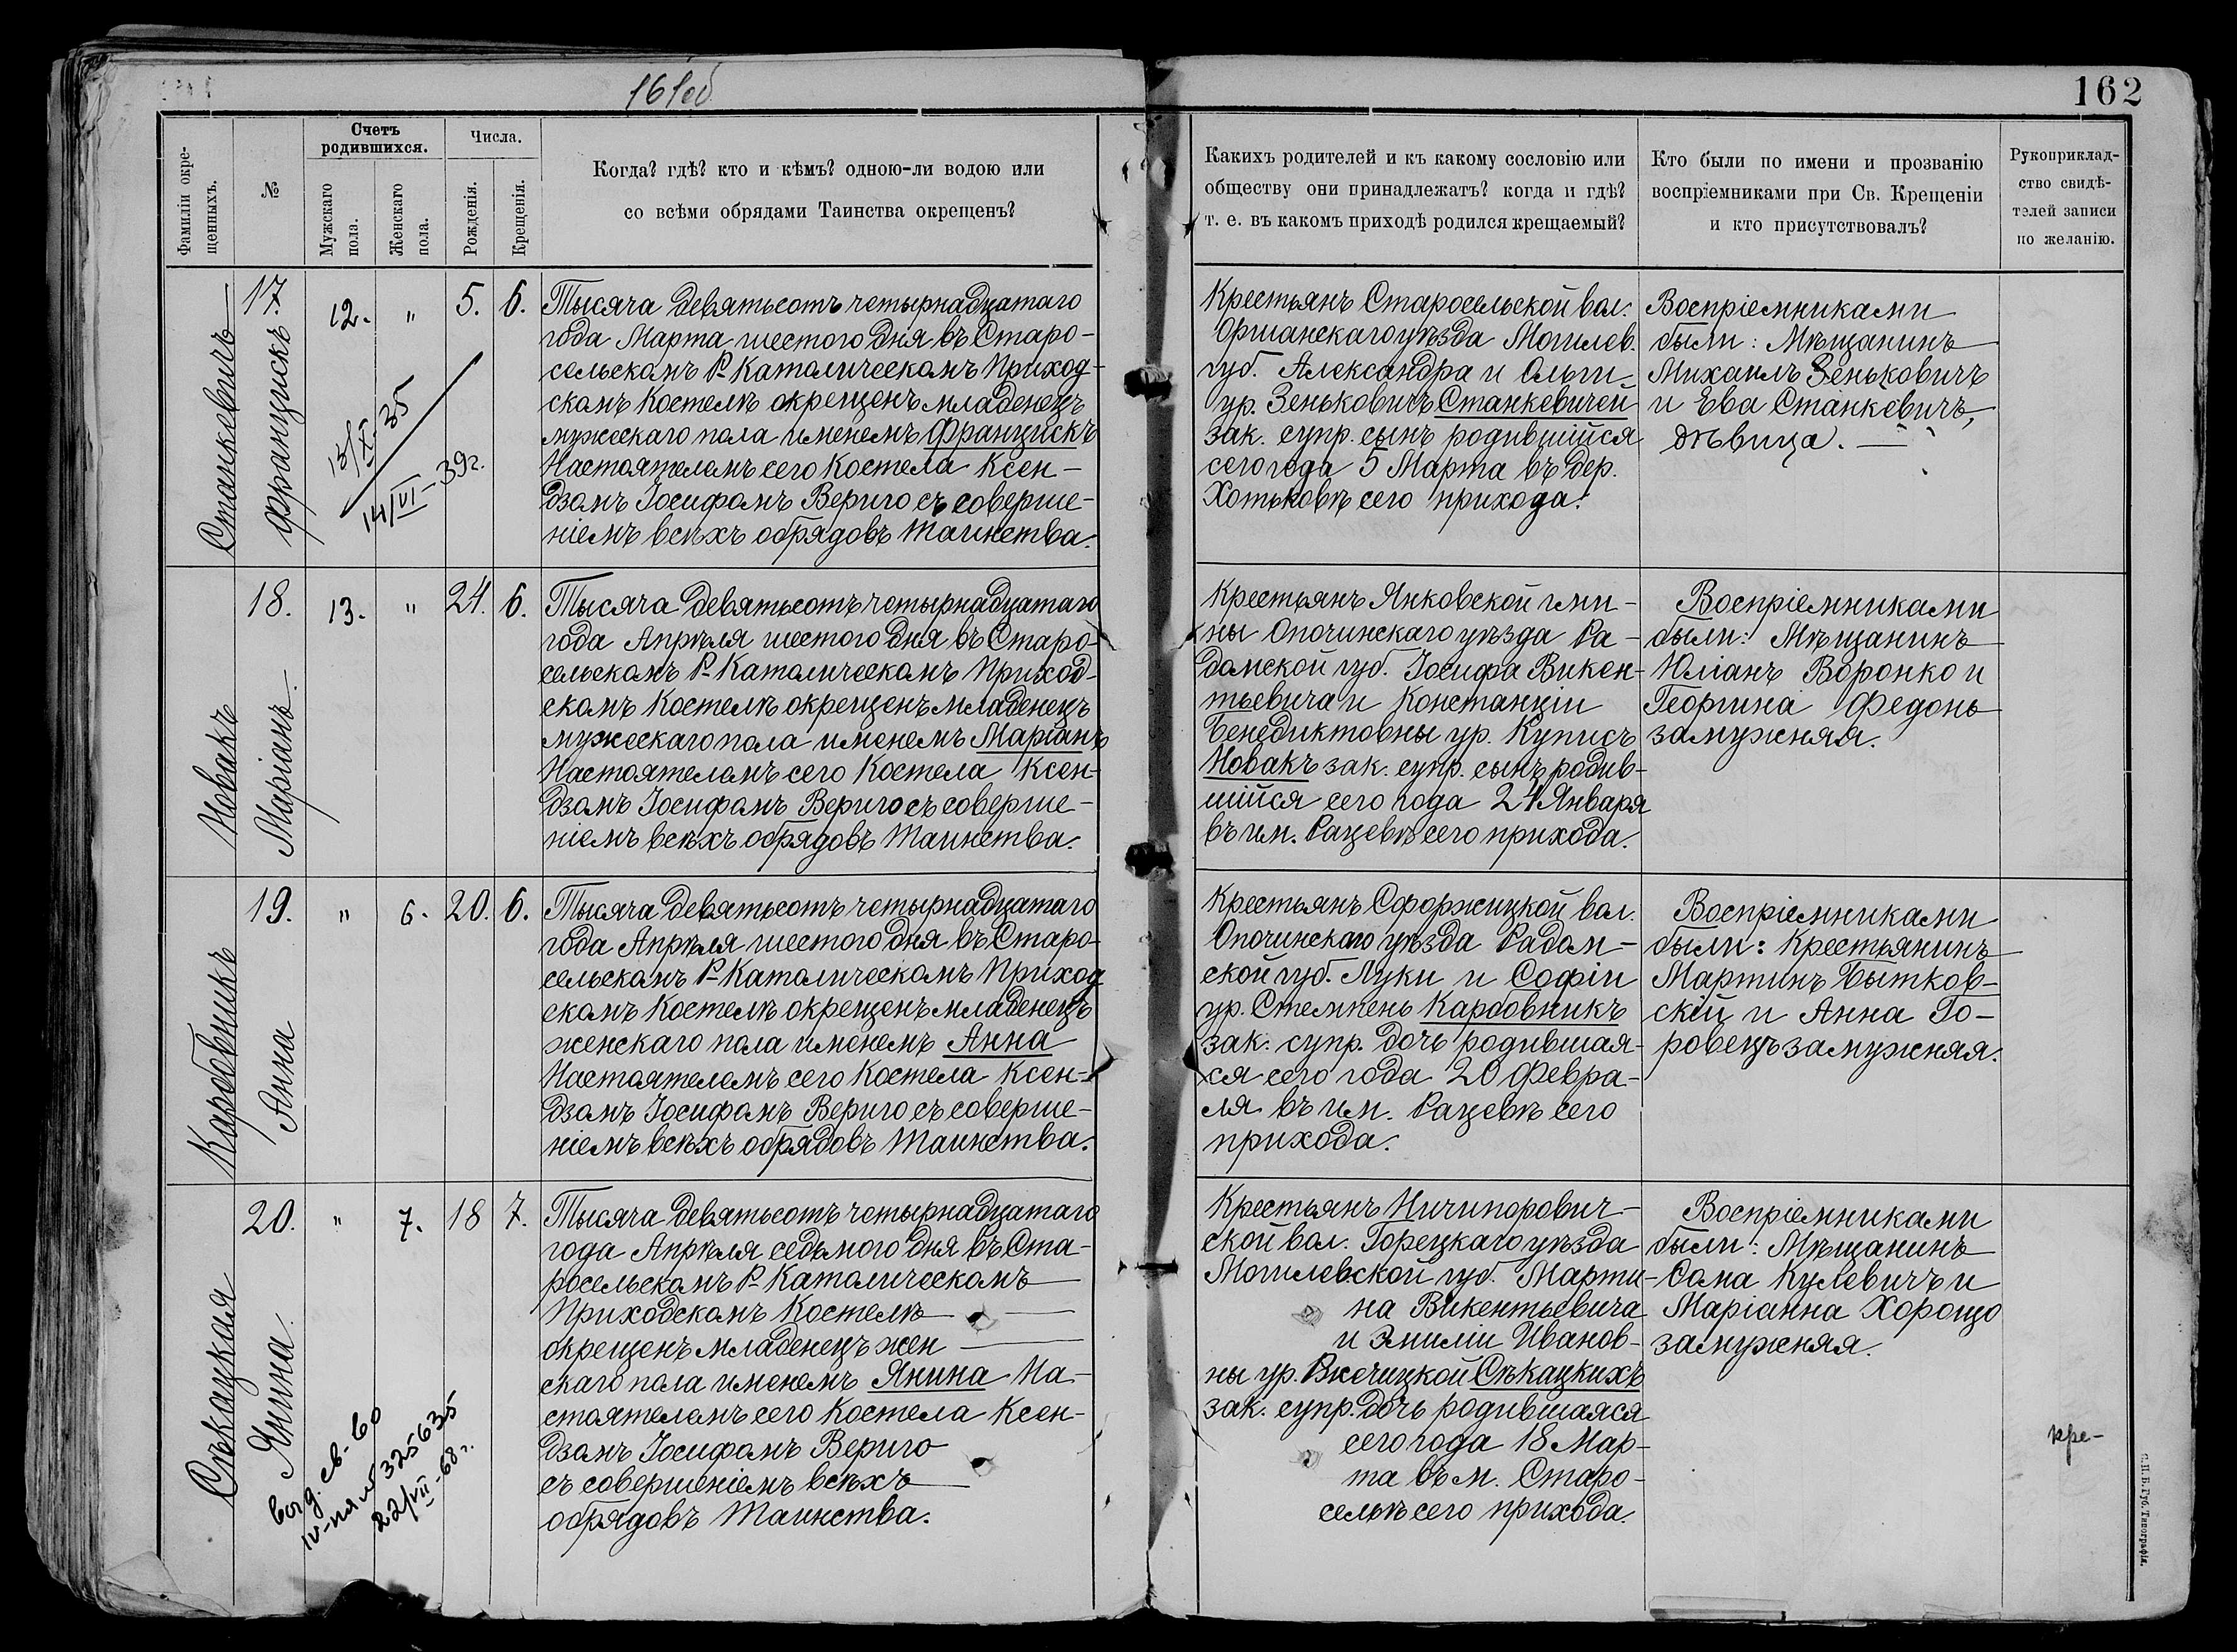 161об
162
Фамиліи окре-
щенныхъ.
№
Счетъ
родившихся.
Мужскаго
пола.
Женскаго
пола.
Числа.
Рожденія.
Крещенія.
Когда? гдѣ? кто и кѣмъ? одною-ли водою или
со всѣми обрядами Таинства окрещенъ?
Какихъ родителей и къ какому сословію или
обществу они принадлежатъ? когда и гдѣ?
т. е. въ какомъ приходѣ родился крещаемый?
Кто были по имени и прозванію
воспріемниками при Св. Крещеніи
и кто присутствовалъ?
Рукоприклад-
ство свидѣ-
телей записи
по желанію.
Станкевичъ
17.
Францискъ
12.
"
5.
6.
13/XI-35
14/VI-39г.
Тысяча девятьсотъ четырнадцатаго
года Марта шестого дня въ Старо-
сельскомъ Р-Католическомъ Приход-
скомъ Костелѣ окрещенъ младенецъ
мужескаго пола именемъ Францискъ
Настоятелемъ сего Костела Ксен-
дзомъ Іосифомъ Вериго съ соверше-
ніемъ всѣхъ обрядовъ Таинства.
Крестьянъ Старосельской вол.
Оршанскаго уѣзда Могилев.
губ. Александра и Ольги
ур. Зеньковичъ Станкевичей
зак. супр. сынъ родившійся
сего года 5 Марта въ дер.
Хотьковѣ сего прихода.
Воспріемниками
были: Мѣщанинъ
Михаилъ Зеньковичъ
и Ева Станкевичъ,
дѣвица.
Новакъ
18.
Маріанъ.
13.
"
24.
6.
Тысяча девятьсотъ четырнадцатаго
года Апрѣля шестого дня въ Старо-
сельскомъ Р-Католическомъ Приход-
скомъ Костелѣ окрещенъ младенецъ
мужескаго пола именемъ Маріанъ
Настоятелемъ сего Костела Ксен-
дзомъ Іосифомъ Вериго съ соверше-
ніемъ всѣхъ обрядовъ Таинства.
Крестьянъ Янковской гми-
ны Опочинскаго уѣзда Ра-
домской губ. Іосифа Викен-
тьевича и Констанціи
Бенедиктовны ур. Куписъ
Новакъ зак. супр. сынъ родив-
шійся сего года 24 Января
въ им. Рацевѣ сего прихода.
Воспріемниками
были: Мѣщанинъ
Юліанъ Воронко и
Георгина Федонь
замужняя.
Карбовникъ
19.
Анна
"
6.
20.
6.
Тысяча девятьсотъ четырнадцатаго
года Апрѣля шестого дня въ Старо-
сельскомъ Р-Католическомъ Приход
скомъ Костелѣ окрещенъ младенецъ
женскаго пола именемъ Анна
Настоятелемъ сего Костела Ксен-
дзомъ Іосифомъ Вериго съ соверше-
ніемъ всѣхъ обрядовъ Таинства.
Крестьянъ Сфоржицкой вол.
Опочинскаго уѣзда Радом-
ской губ. Луки и Софіи
ур. Стемпень Карбовникъ
зак. супр. дочь родившая-
ся сего года 20 Февра-
ля въ им. Рацевѣ сего
прихода.
Воспріемниками
были: Крестьянинъ
Мартинъ Бытков-
скій и Анна Го-
ровецъ замужняя.
Сѣкацкая
20.
Янина
"
7.
18
7.
выд. св-во
IV-ПЯ № 325635
22/VII-68г.
Тысяча девятьсотъ четырнадцатаго
года Апрѣля седьмого дня въ Ста-
росельскомъ Р-Католическомъ
Приходскомъ Костелѣ
окрещенъ младенецъ жен
скаго пола именемъ Янина На-
стоятелемъ сего Костела Ксен-
дзомъ Іосифомъ Вериго
съ совершеніемъ всѣхъ
обрядовъ Таинства.
Крестьянъ Ничипорович-
ской вол. Горецкаго уѣзда
Могилевской губ. Марти-
на Викентьевича
и Эмиліи Иванов-
ны ур. Сѣкацкихъ
зак. супр. дочь родившаяся
сего года 18 Мар-
та въ м. Старо-
сельѣ сего прихода.
Воспріемниками
были: Мѣщанинъ
Сама Кулевичъ и
Маріанна Хорощо
замужняя.
кре-
С.П.Б. Губ. Типографія.